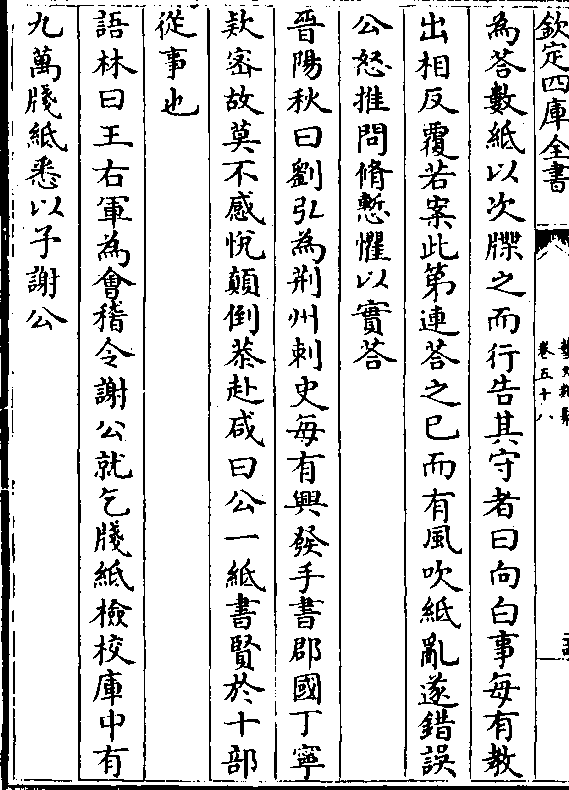 欽定四庫全書
藝文類聚
卷五十八
為荅數紙以次牒之而行告其守者曰向白事每有教
出相反覆若案此第連荅之已而有風吹紙亂遂錯誤
公怒推問脩慙懼以實荅
晉陽秋曰劉弘為荆州刺史每有興發手書郡國丁寧
欵宻故莫不感悅顛倒恭赴咸曰公一紙書賢於十部
從事也
語林曰王右軍為會稽令謝公就乞牋紙檢校庫中有
九萬牋紙悉以予謝公